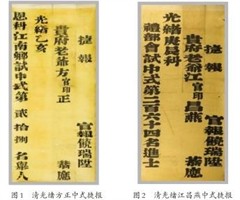 捷報 官報饒瑞陞
貴府老爺方官印正 恭應
光緒乙亥
恩科江南鄉試中式第貳拾捌名舉人
图1 清光绪方正中式捷报
捷報 官報饒瑞陞
貴府老爺江官印昌燕 恭應
光緒庚辰科
禮部會試中式第二百六十四名進士
图2 清光绪江昌燕中式捷报